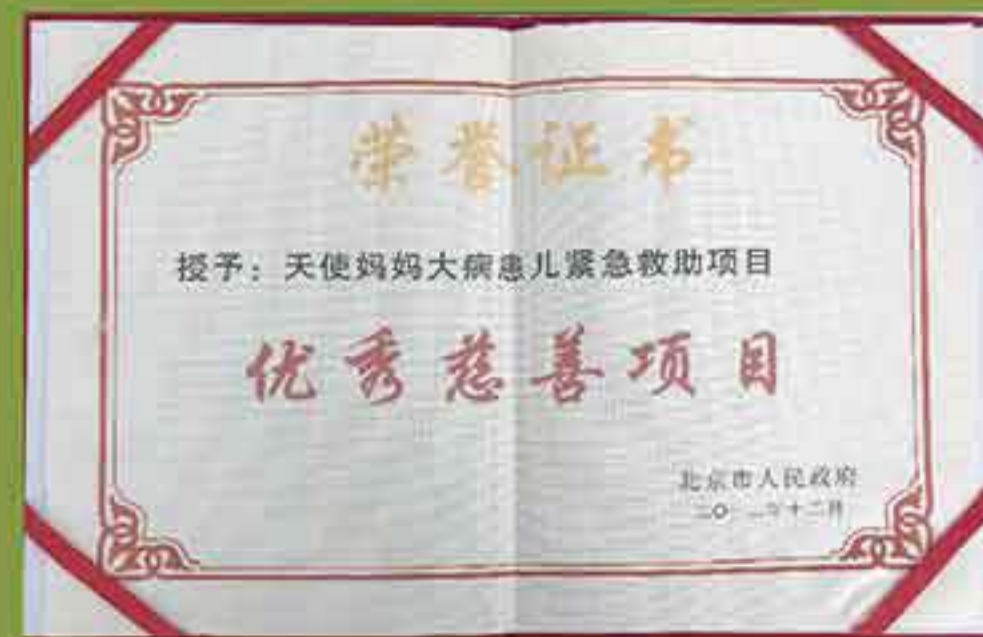 荣誉证书
授予：天使妈妈大病患儿紧急救助项目
优秀慈善项目
北京市人民政府
十二月